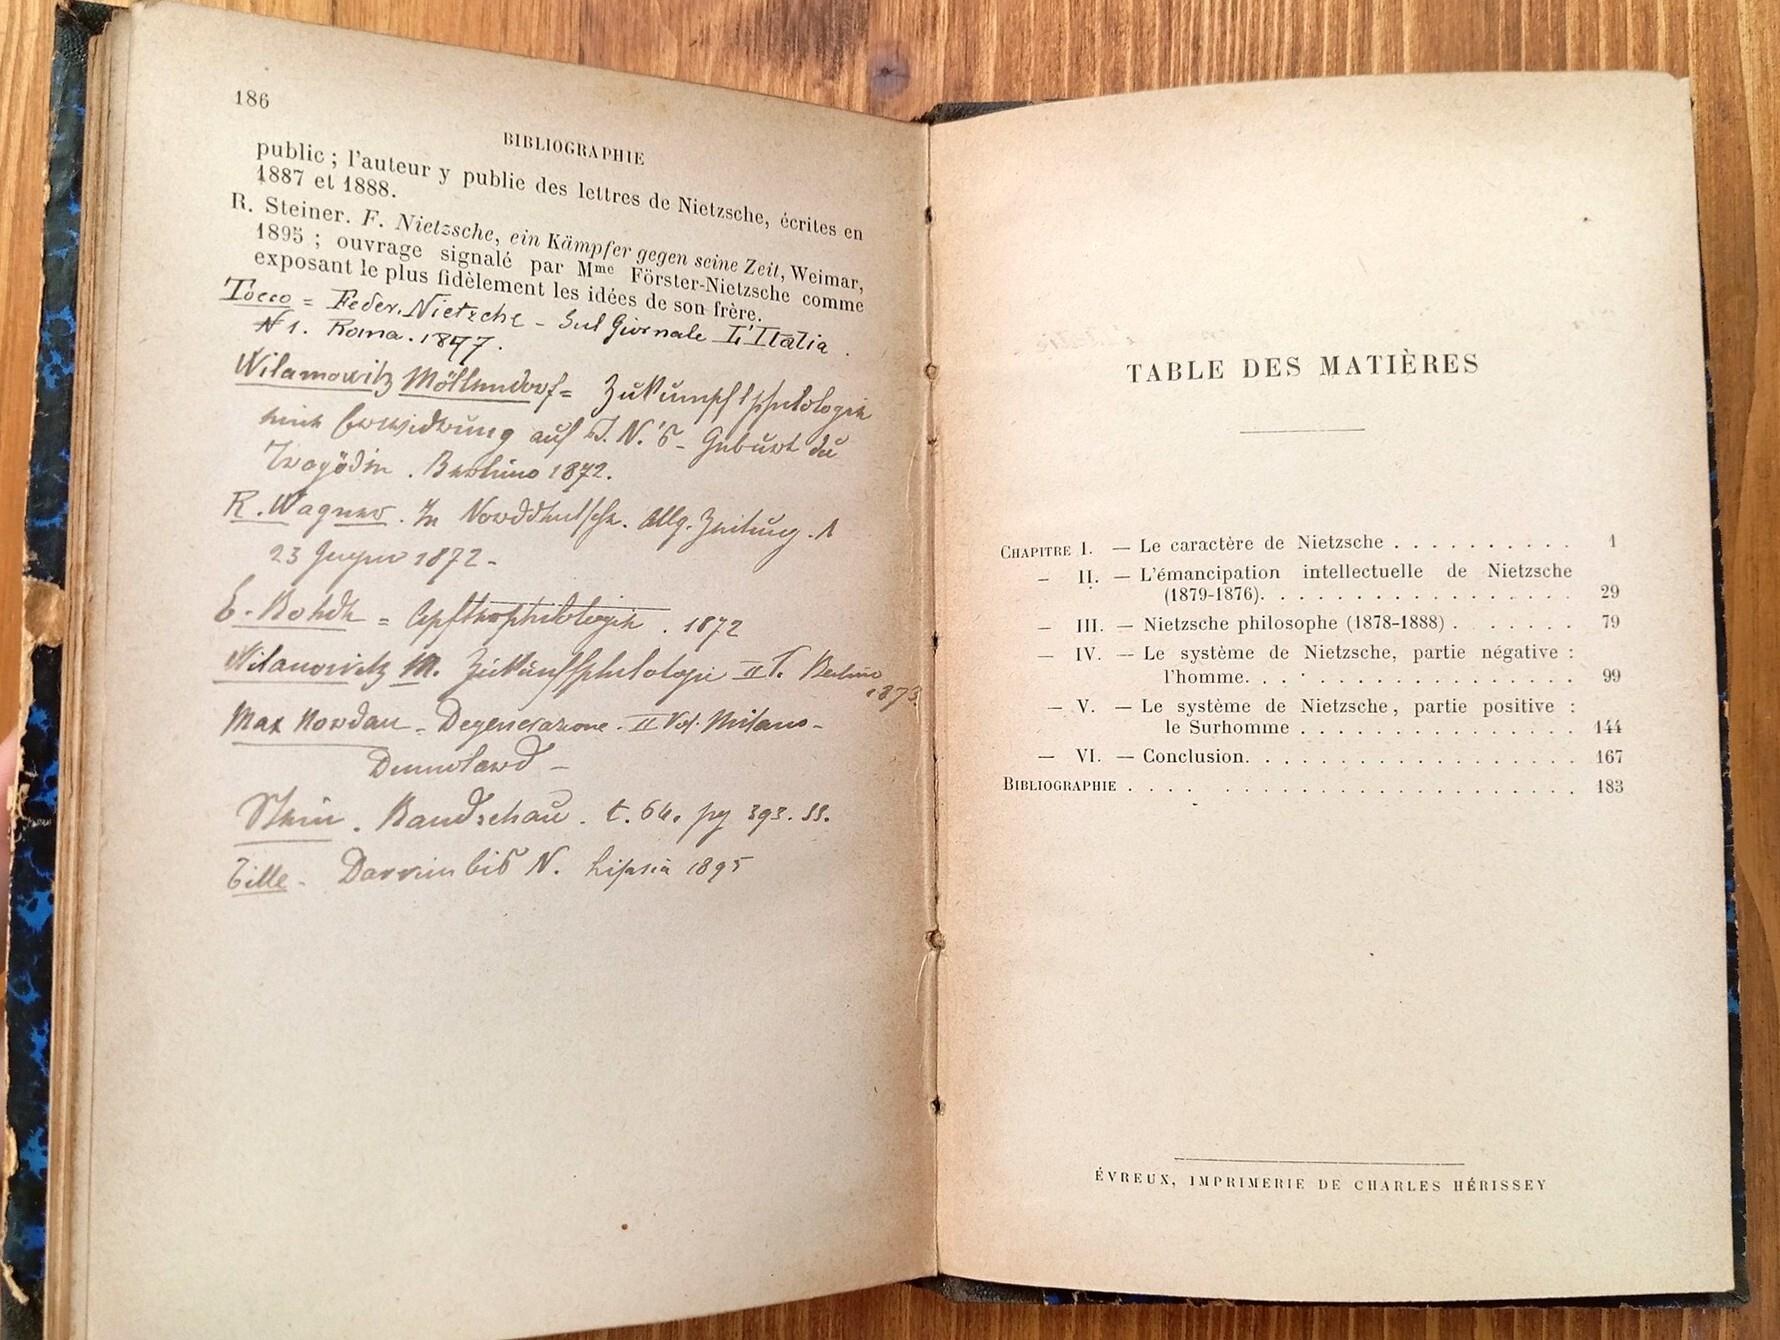 186
BIBLIOGRAPHIE
public ; l'auteur y publie des lettres de Nietzsche, écrites en
1887 et 1888.
R. Steiner. F. Nietzsche, ein Kämpfer gegen seine Zeit, Weimar,
1895 ; ouvrage signalé par Mme Förster-Nietzsche comme
exposant le plus fidèlement les idées de son frère.
Tocco = Feder. Nietzche - Sul Giornale L'Italia.
N 1. Roma. 1897.
Wilamowitz Möllendorf = Zukumpftphilologie
auf N.'s - Geburt der
Tragödie. Berlino 1872.
R. Wagner. In Norddeutsche. Allg. Zeitung.
23 1872 -
E. Rohde = . 1872
Wilamowitz M. Zukünftphilologie II T. Berlino
1873.
Max Nordau - Degenerazione - II Vol. Milano -
Dumolard -
Stein. Rundschau. t. 64. pg 393. ss.
Tille - Darwin bis N. Lipsia 1895
TABLE DES MATIÈRES
CHAPITRE I. — Le caractère de Nietzsche . . . . . . . . . . 1
— II. — L'émancipation intellectuelle de Nietzsche
(1879-1876). . . . . . . . . . . . . . . . . 29
— III. — Nietzsche philosophe (1878-1888) . . . . . . . 79
— IV. — Le système de Nietzsche, partie négative :
l'homme. . . . . . . . . . . . . . . . . . 99
— V. — Le système de Nietzsche, partie positive :
le Surhomme . . . . . . . . . . . . . . . . 144
— VI. — Conclusion. . . . . . . . . . . . . . . . . . 167
BIBLIOGRAPHIE . . . . . . . . . . . . . . . . . . . . . . 183
ÉVREUX, IMPRIMERIE DE CHARLES HÉRISSEY